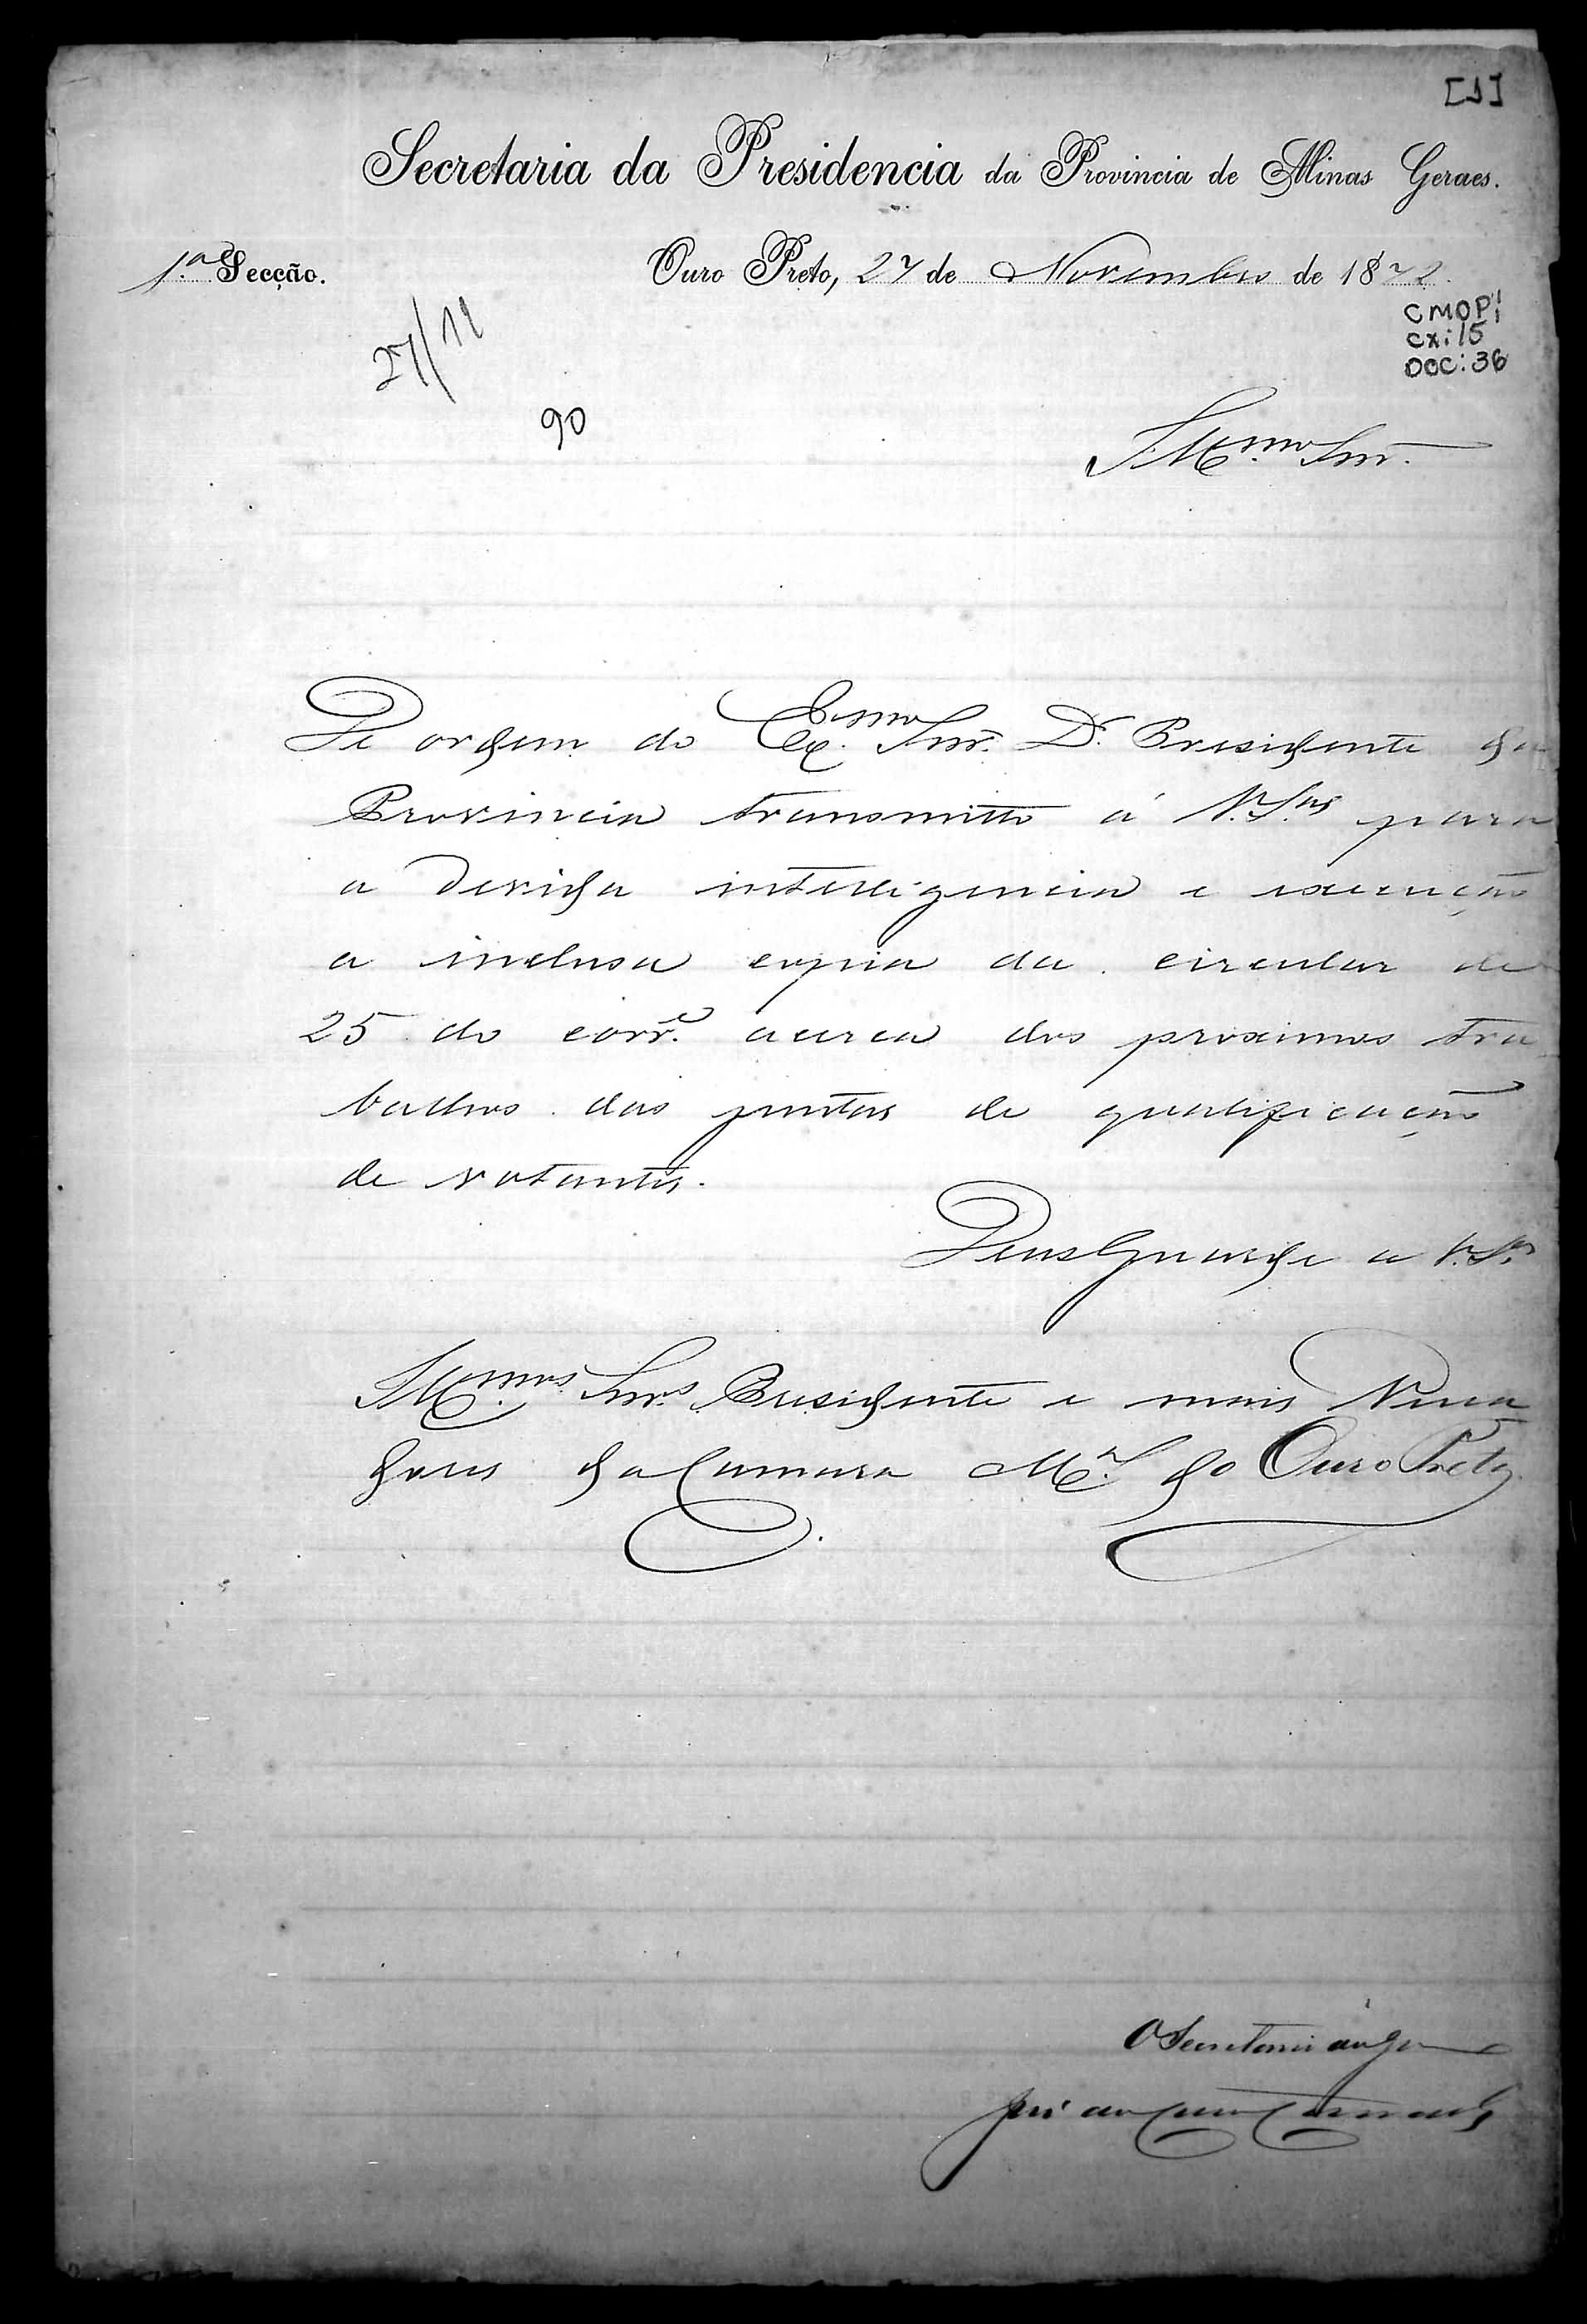 [1]
Secretaria da Presidencia da Provincia de Minas Geraes.
1.ª Secção.
Ouro Preto, 27 de Novembro de 1872.
27/11
CMOP:
cx: 15
DOC: 36
90
Illmo. Snr.
De ordem do Exmo. Snr. Dr. Presidente da
Provincia transmitto á V. Sas para
a devida intelligencia e execução
a inclusa copia da circular de
25 do corre. acerca dos proximos tra
balhos das juntas de qualificação
de votantes.
Deus Guarde a V. Sas
Illmos. Snrs. Presidente e mais Verea
dores da Camara Mal. do Ouro Preto
O Secretario do